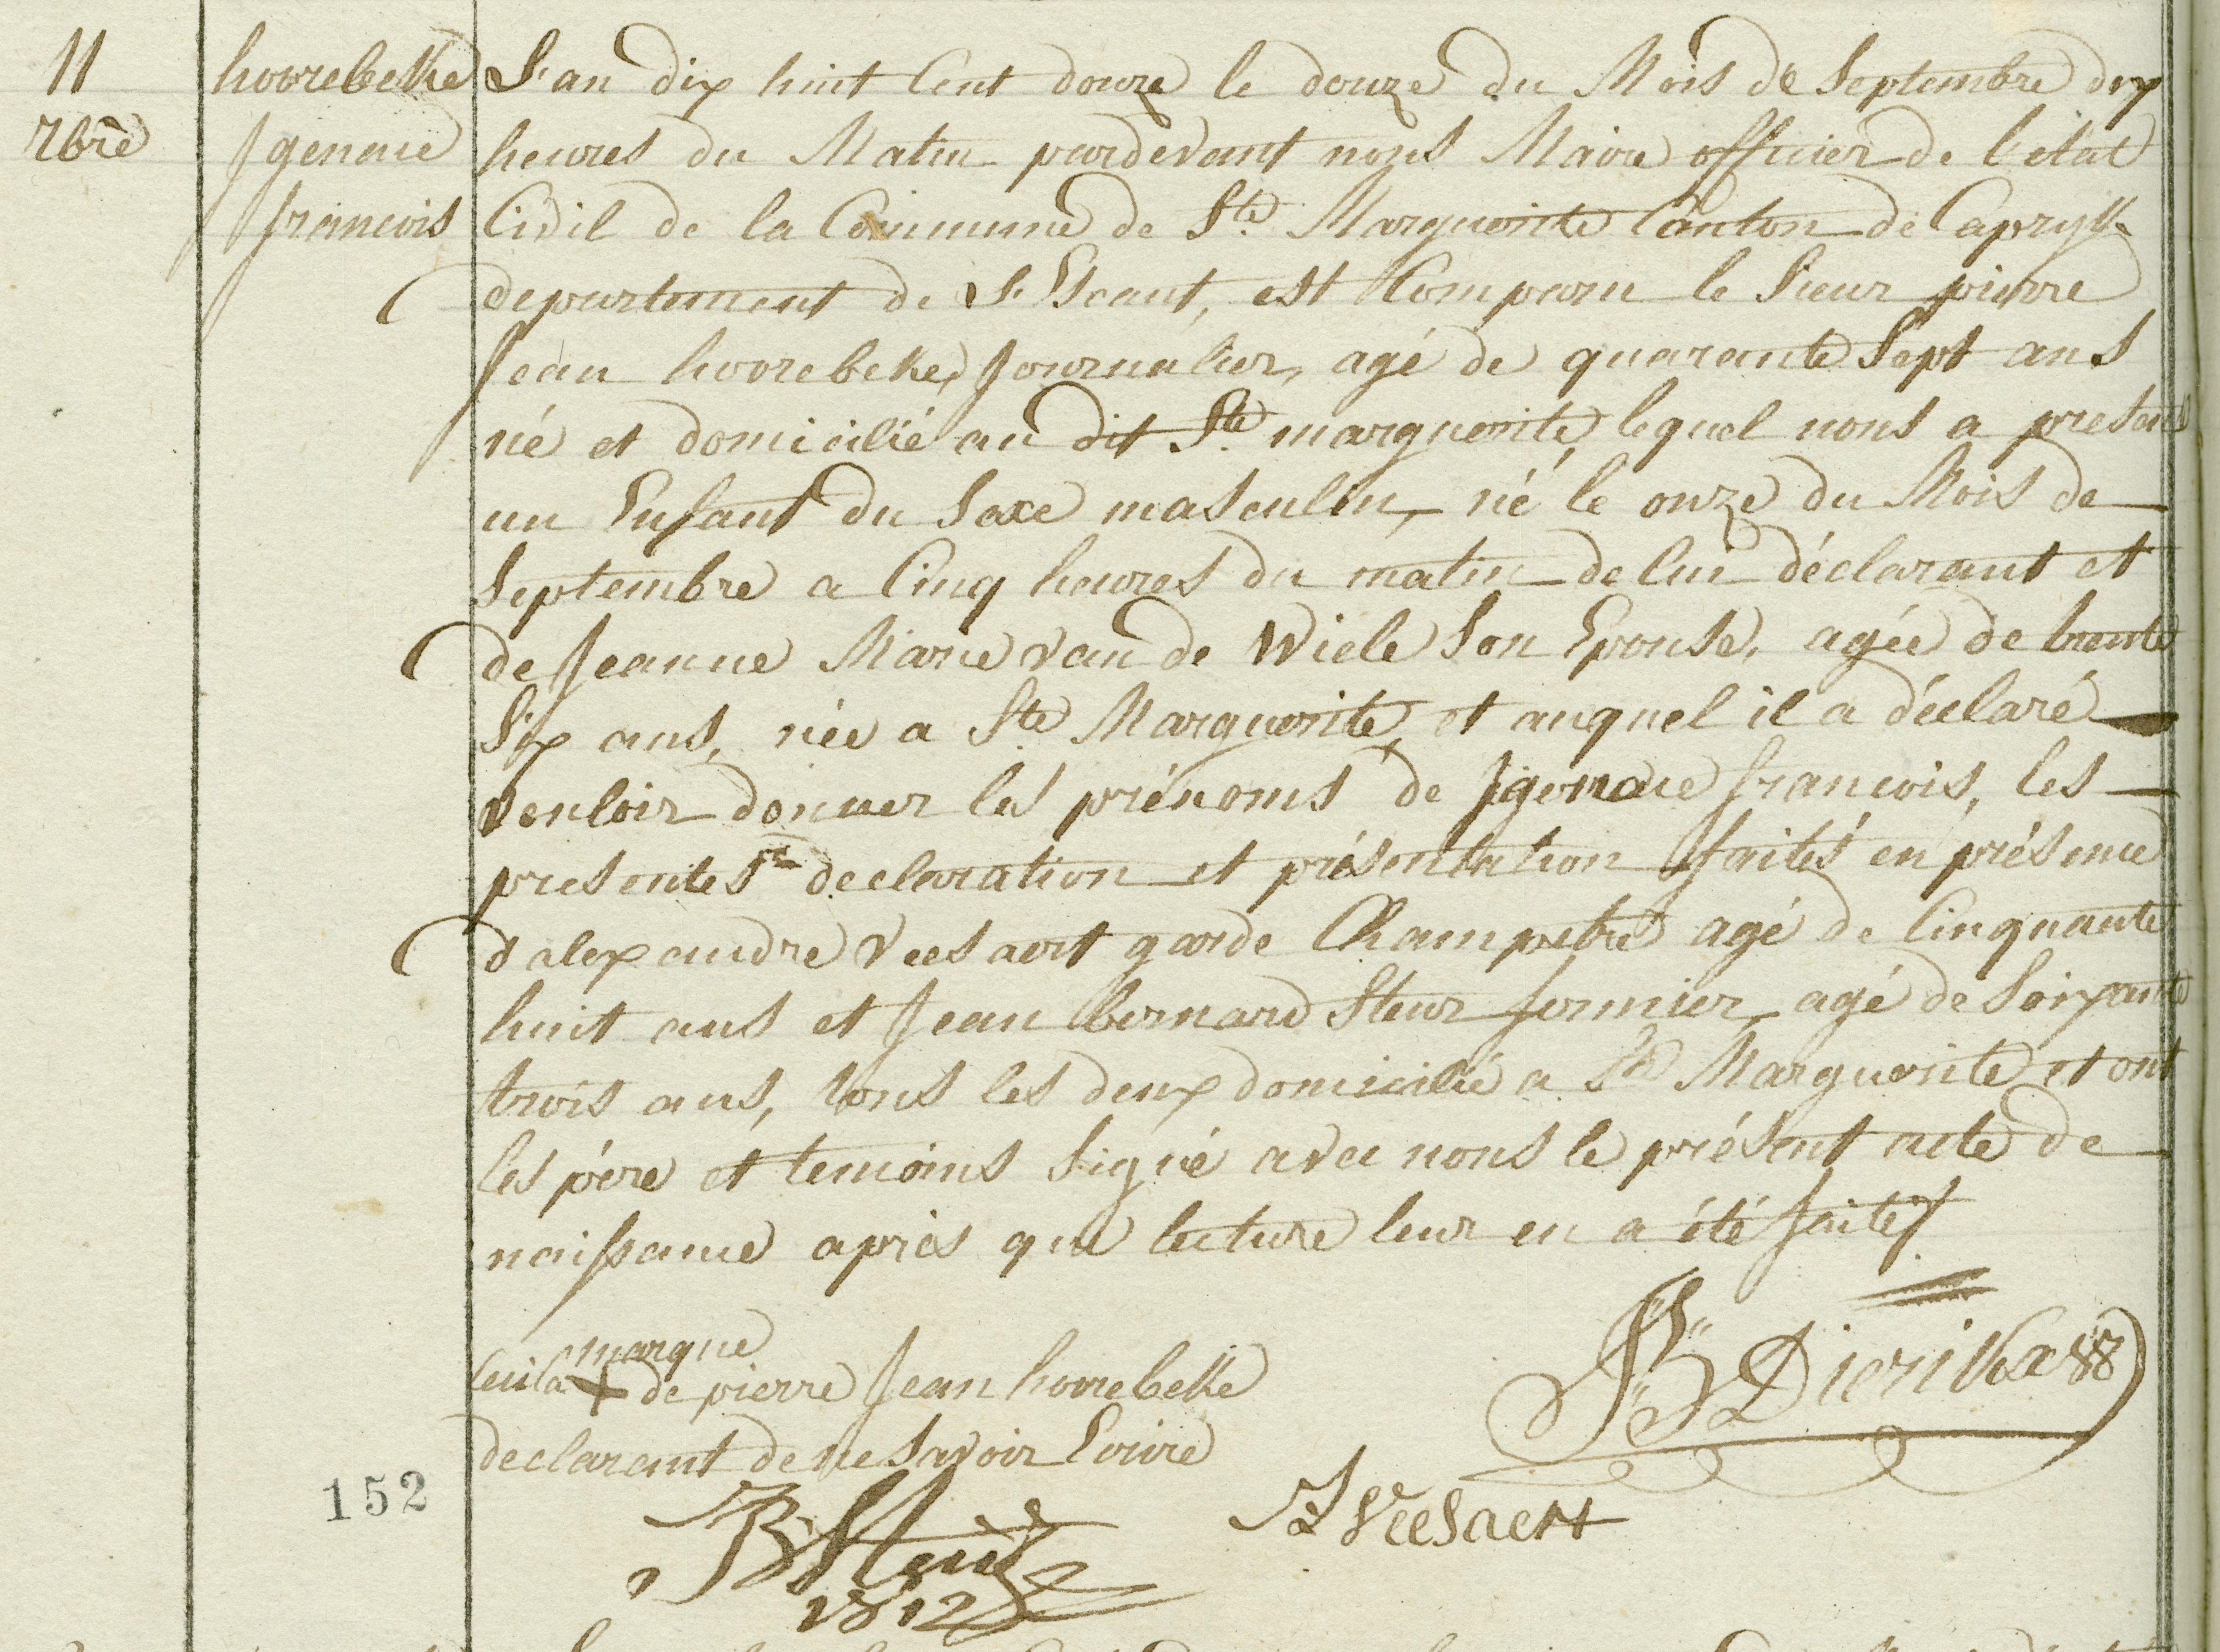 11
7bre
hoorebeke
Jgenace
francois
L'an dix huit Cent douze le douze du Mois de Septembre dix
heures du Matin pardevant nous Maire officier de l'etat
Civil de la Commune de Ste Marguerite Canton de Capryk
departement de L'Escaut, est Comparu le Sieur pierre
Jean hoorebeke, Journalier, agé de quarante Sept ans
né et domicilié au dit Ste marguerite, lequel nous a presenté
un Enfant du Sexe masculin, né le onze du Mois de
Septembre a Cinq heures du matin de lui déclarant et
de Jeanne Marie van de Wiele Son Epouse, agée de trente
Six ans, née a Ste Marguerite, et auquel il a déclaré
vouloir donner les prénoms de Jgenace francois, les
presentes declaration et présentation faites en présence
d'alexandre Veesaert garde Champetre agé de Cinquante
huit ans et Jean bernard Steur fermier agé de Soixante
trois ans, tous les deux domicilié a Ste Marguerite et ont
les père et temoins Signé avec nous le présent acte de
naissance après que lecture leur en a été faite
marque
Ceci la + de pierre Jean hoorebeke
declarant de ne Savoir Ecrire
Dierikx
JB Steur
1812
Veesaert
152